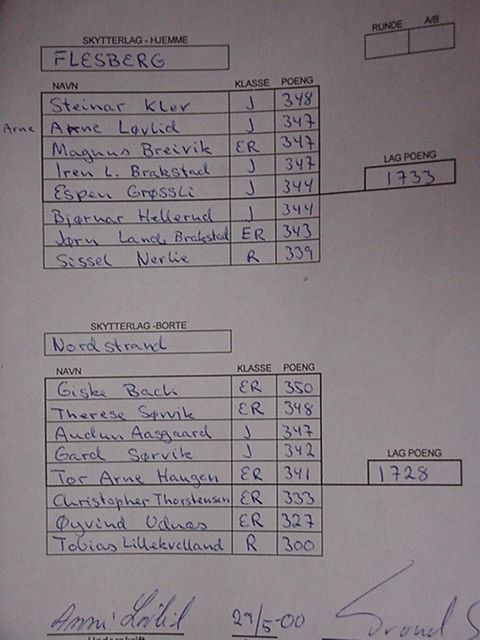 SKYTTERLAG - HJEMME
RUNDE A/B
FLESBERG
NAVN KLASSE POENG
Steinar Klev J 348
Arne Arne Løvlid J 347
Magnus Breivik ER 347
Iren L. Brakstad J 347
LAG POENG
Espen Grøssli J 344 1733
Bjørnar Hellerud J 344
Jørn Lande Brakstad ER 343
Sissel Nerlie R 339
SKYTTERLAG -BORTE
Nordstrand
NAVN KLASSE POENG
Giske Bach ER 350
Therese Sørvik ER 348
Audun Aasgaard J 347
Gard Sørvik J 342
LAG POENG
Tor Arne Haugen ER 341 1728
Christopher Thorstensen ER 333
Øyvind Udnæs ER 327
Tobias Lillekvelland R 300
29/5-00